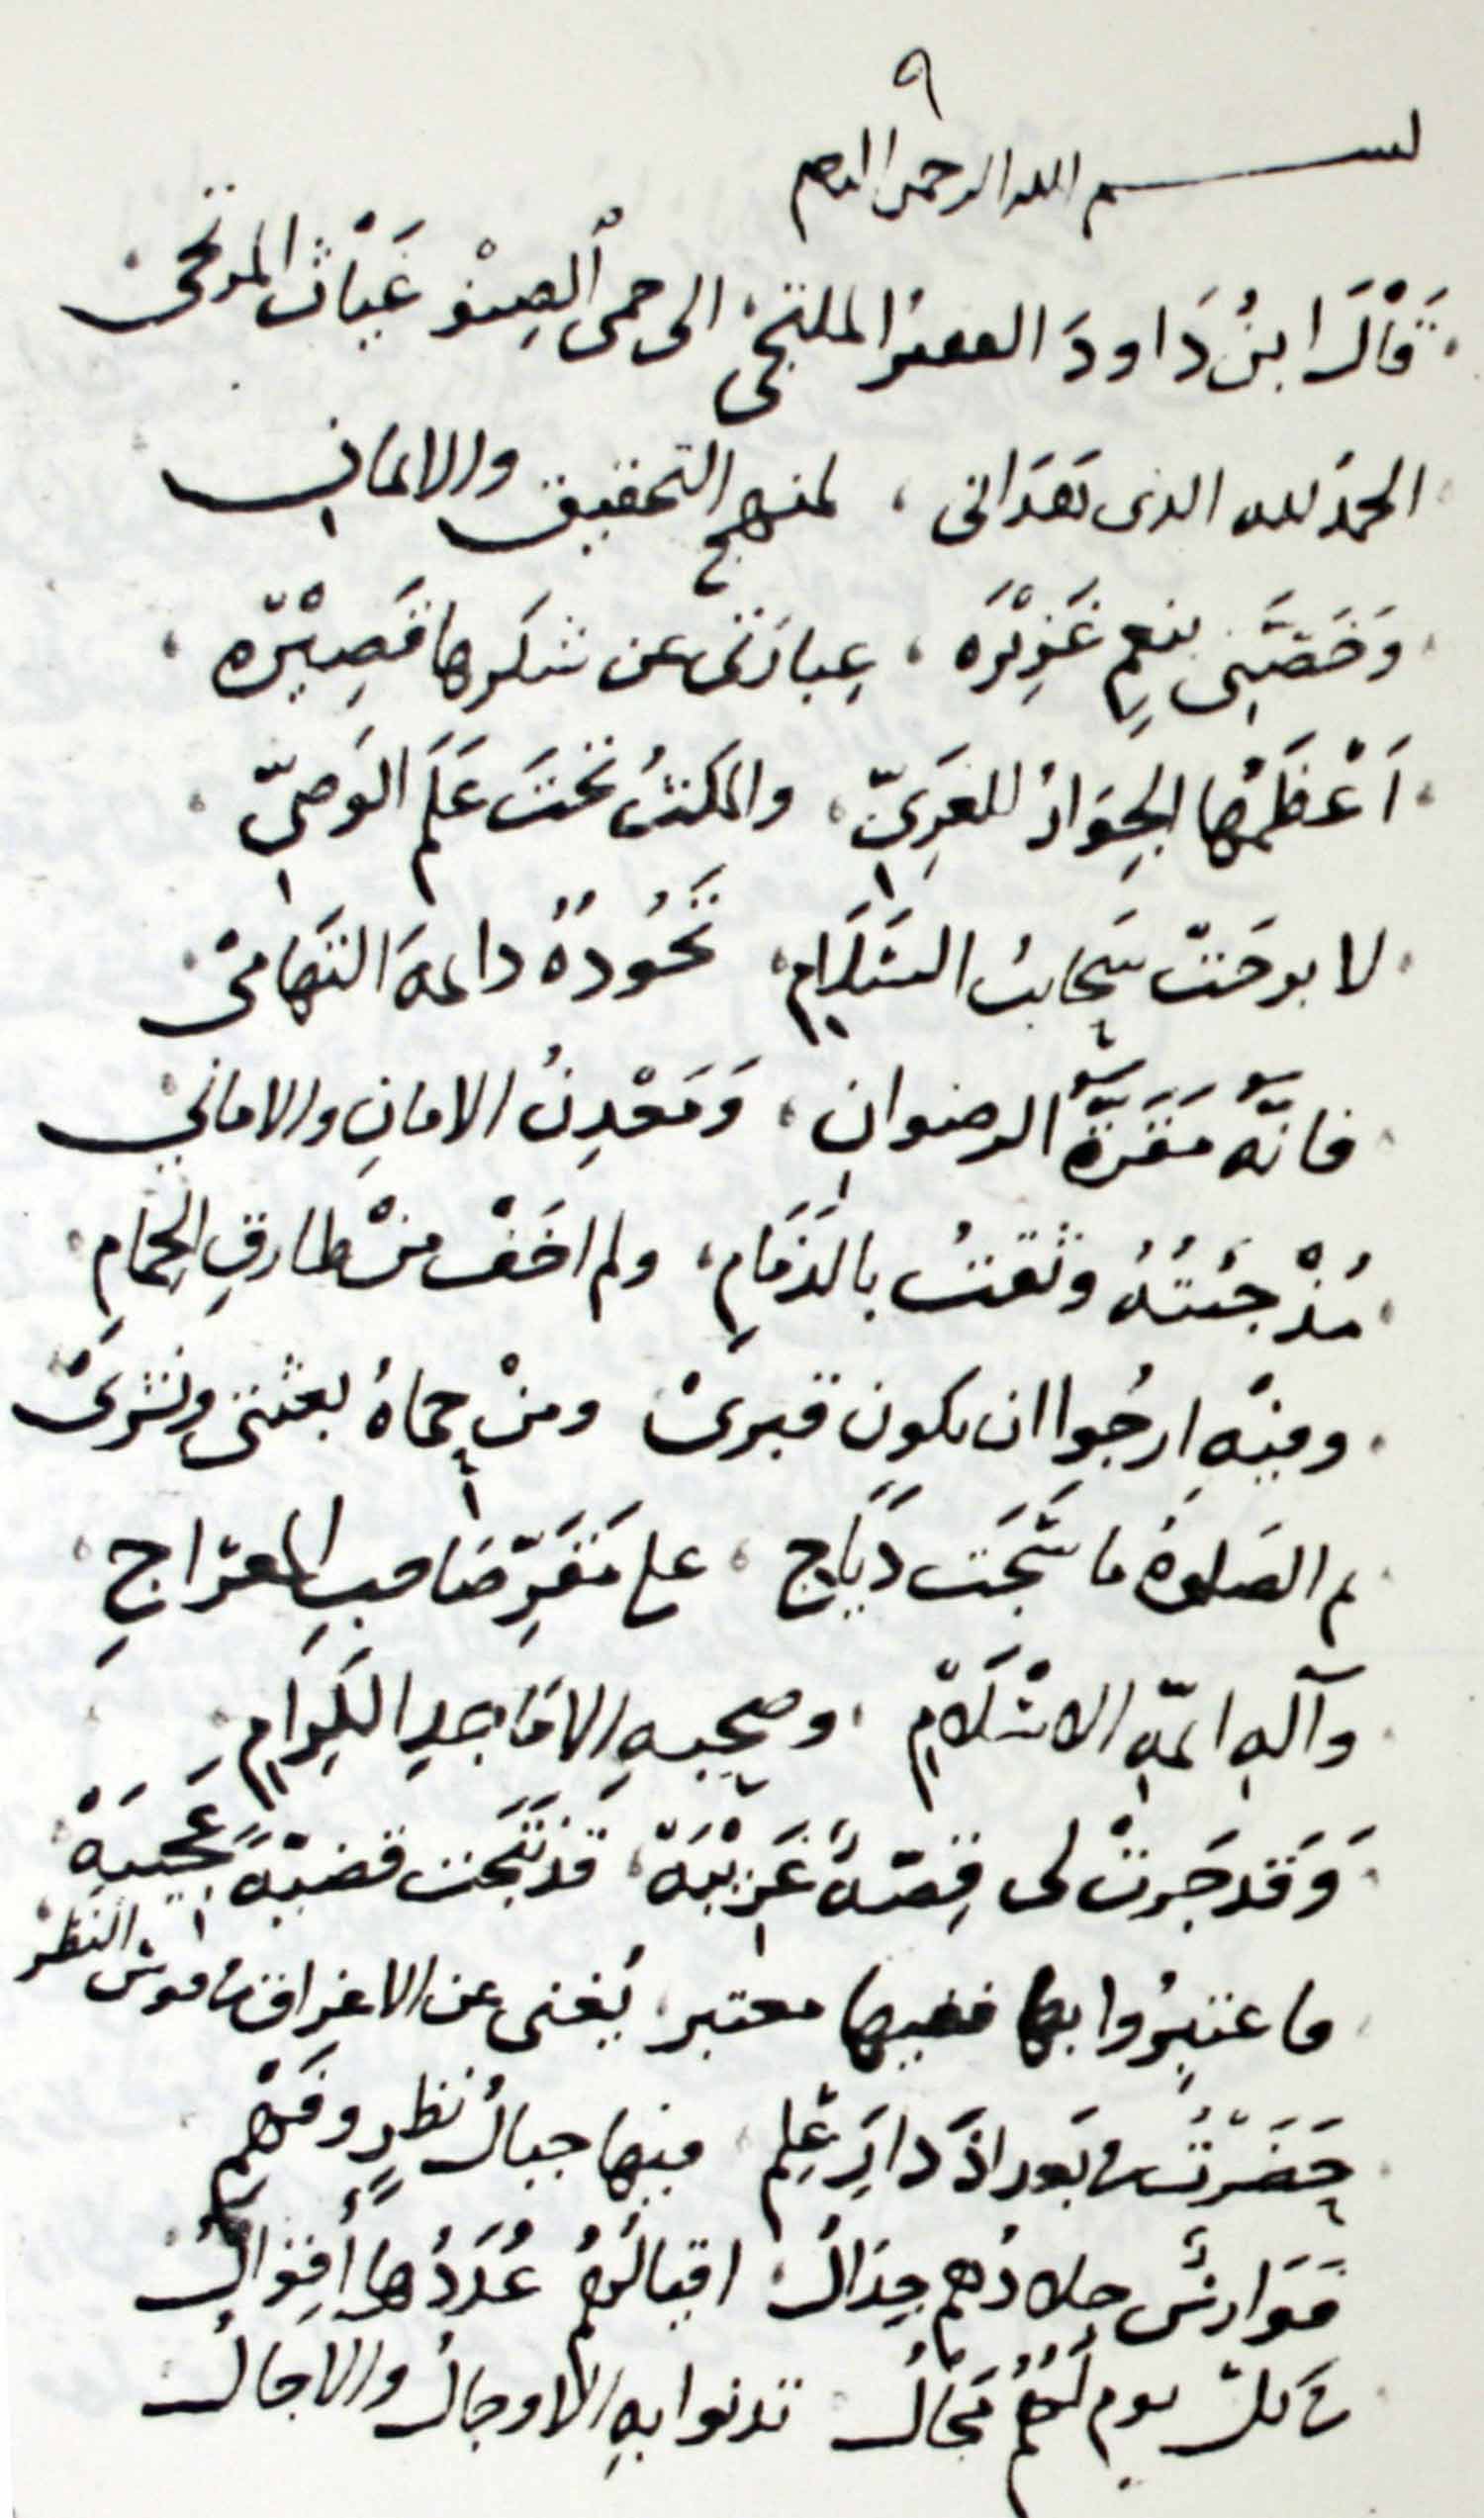 ٩
بسم الله الرحمن الرحيم
قَالَ ابنُ دَاودَ الفقيرُ الملتجي الى حمى الصِنْو غَيَاث المرتجى
الحمدُ لله الذى هَدَانى ، لمنهج التحقيق والايمانِ
وَخَصَّنى بنعمٍ غَزِيْرَه ، عِبارَتى عن شكرها قَصِيْرَه ،
اَعْظَمُها الجِوَارُ للغَرِىّ ، والمَكثُ تحتَ عَلَمِ الوَصِىّ ،
لا برحَتْ سَحَايبُ السَلَامِ تَجُودُهُ دايمةَ التَهامى
فانَّهُ مَقَرَّةُ الرضوانِ ، وَمَعْدِنُ الامانِ والامانى
مُذْ جئتُهُ وثقتُ بالذِمَامِ ، ولم اخَفْ منْ طارقِ الحِمامِ
وفيْهِ ارجُوا ان يكون قبرىْ ومنْ حِماهُ بعثتى ونشرىْ
ثم الصَلوةُ ما سَجَت دَيَاج ، على مَقَرِّ صَاحبِ المعرَاجِ
وآلهِ ايمّةِ الاسْلَامِ ، وصحبهِ الامَاجدِ الكِرَامِ
وَقَد جَرتْ لى قِصّةٌ غَرِيْبَةْ ، قَدْ نَتَجَت قضيّةً عَجيبَةْ
فاعتبرُوا بها ففيها معتبر ، يُغنى عن الاغراق فى قوس النظر
حَضَرْتُ فى بَغداذَ دَارَ عِلم فيها جبالُ نظرٍ وفَهْمِ
فَوَارسٌ جلادُهم جِدَالُ ، اقيالُهُمْ عُدَدُها أقوَالُ
فى كلّ يوم لَهُمُ مَجَالُ تدنوا بهِ الاوجالُ والاجالُ